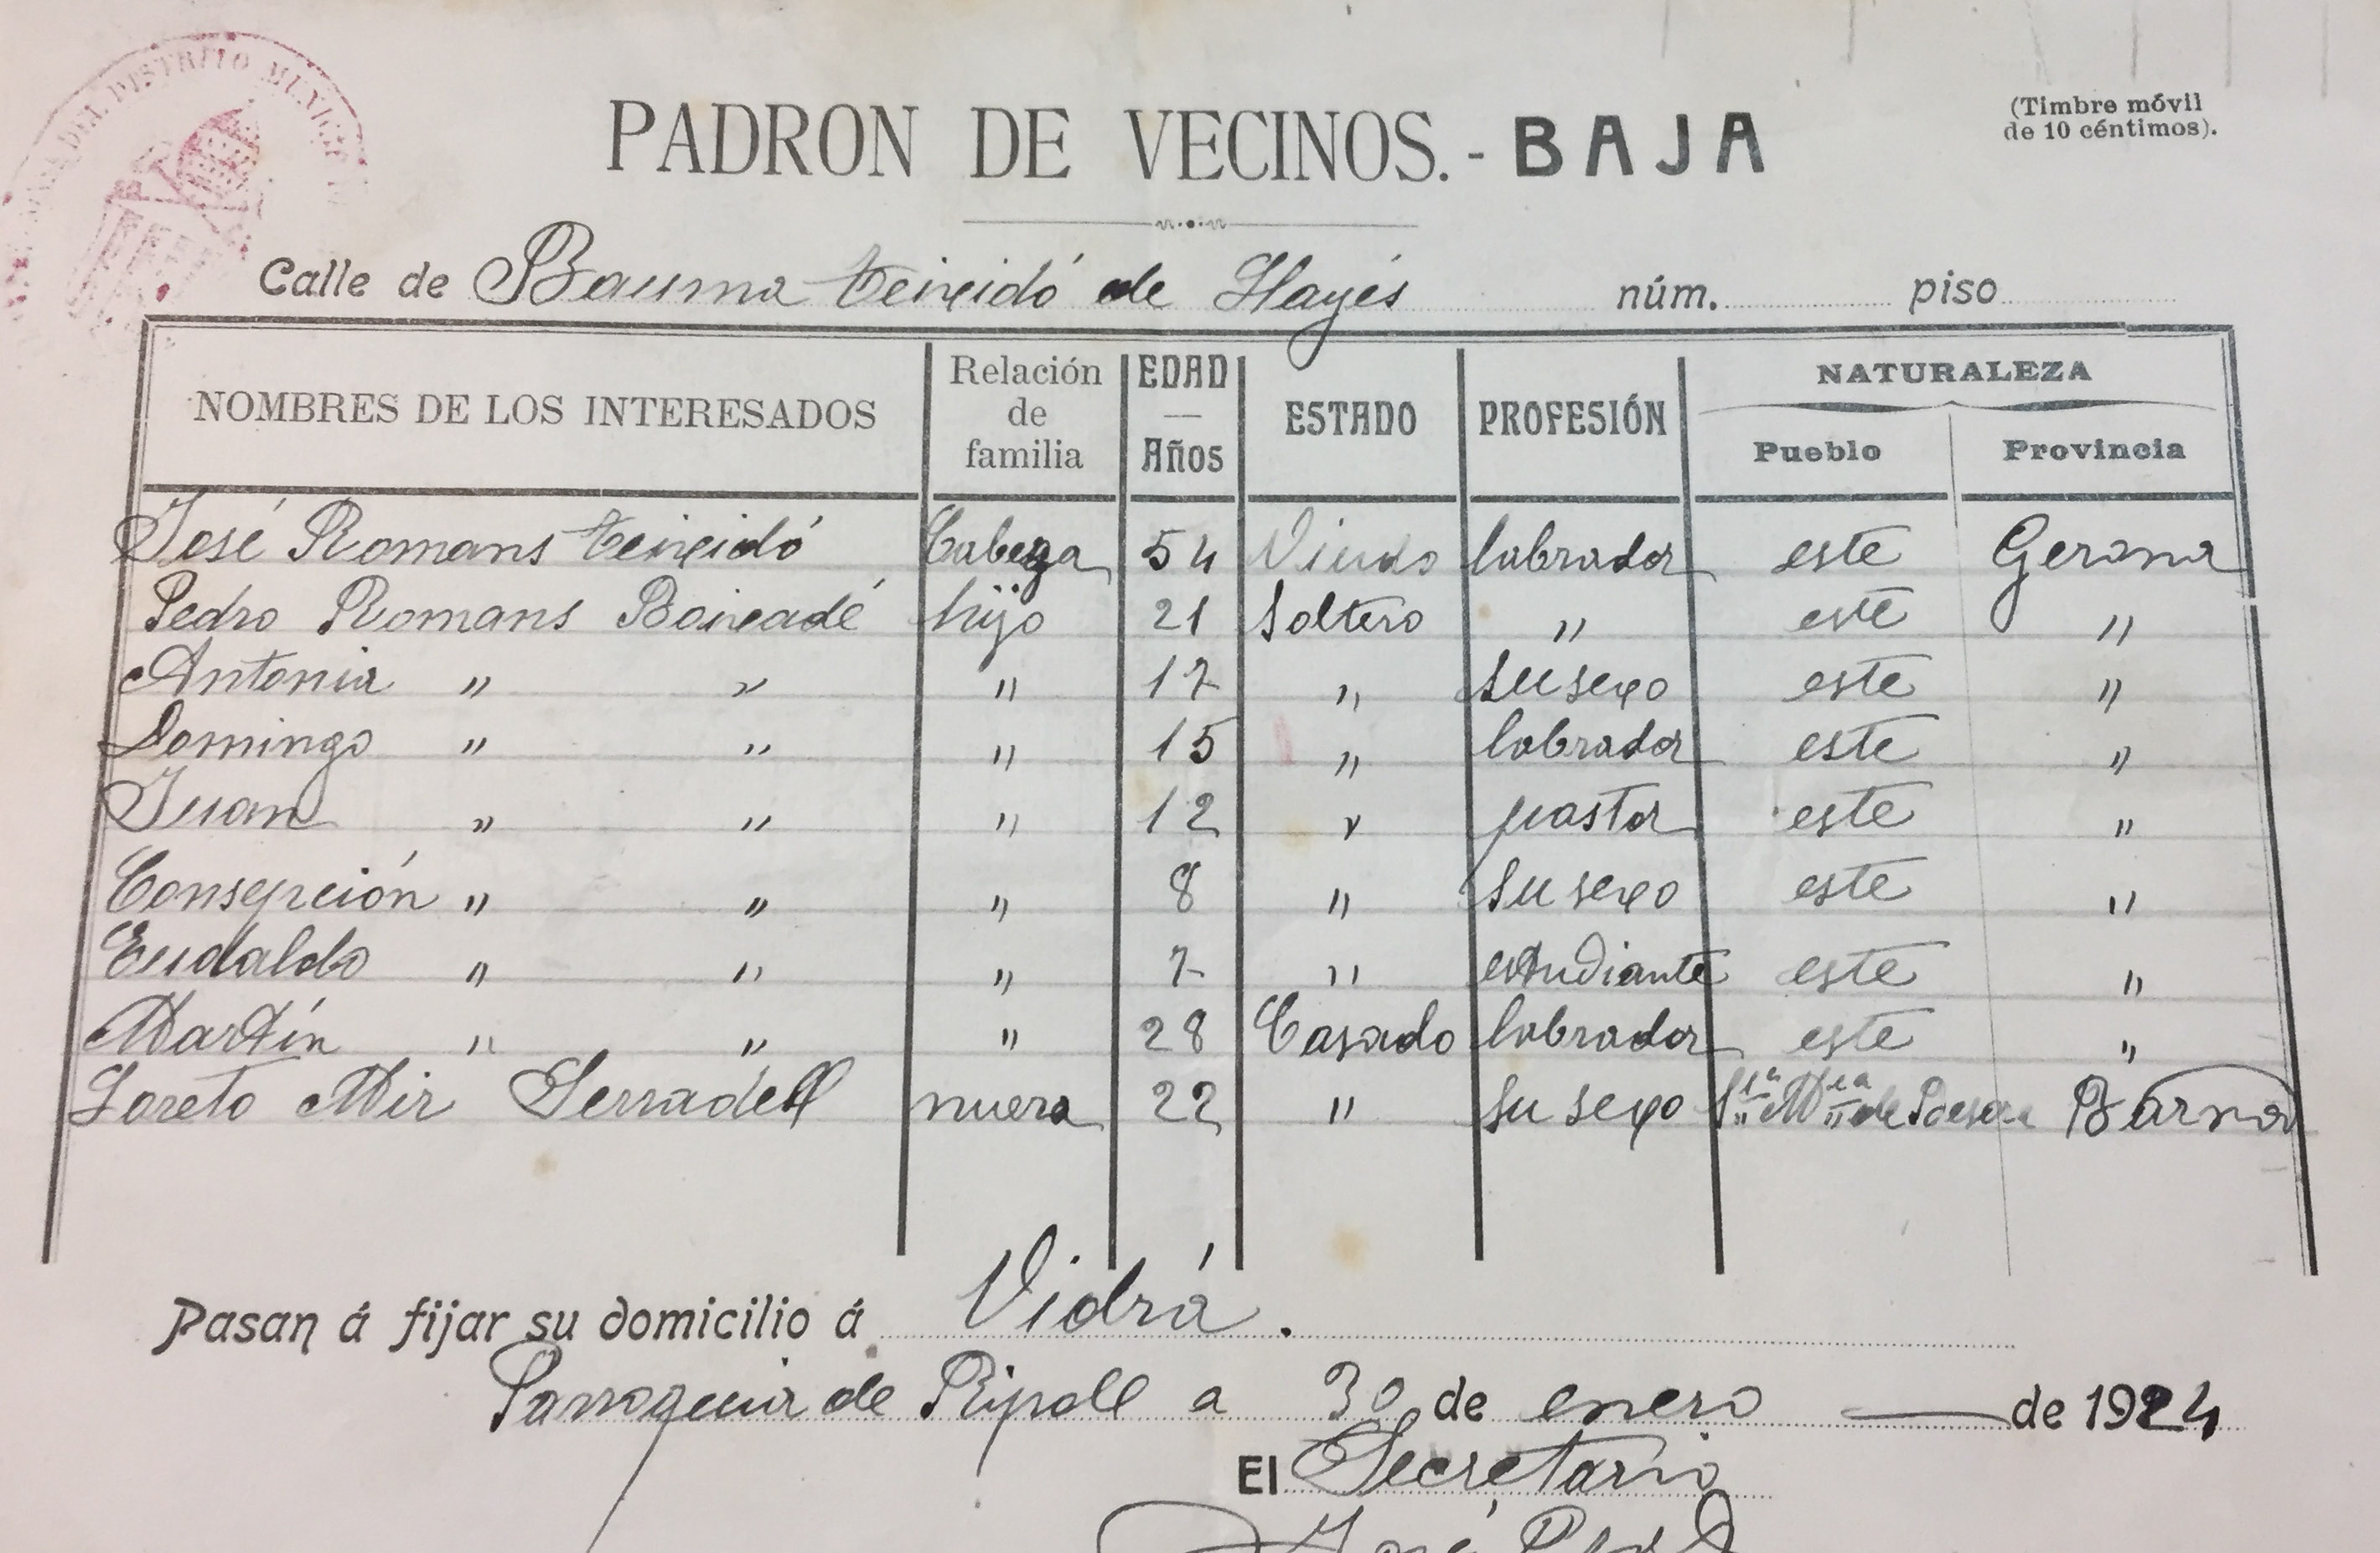 DEL DISTRITO MUNICIPAL
PADRON DE VECINOS.- BAJA
(Timbre móvil
de 10 céntimos).
Calle de Bauma teixidó de Llayés núm. piso
NOMBRES DE LOS INTERESADOS Relación de familia EDAD — Años ESTADO PROFESIÓN NATURALEZA Pueblo Provincia
José Romans teixidó Cabeza 54 Viudo labrador este Gerona
Pedro Romans Boixadé hijo 21 Soltero " este "
Antonia " " " 17 " su sexo este "
Domingo " " " 15 " labrador este "
Juan " " " 12 " pastor este "
Consepción " " " 8 " su sexo este "
Eudaldo " " " 7 " estudiante este "
Martín " " " 28 Casado labrador este "
Loreto Mir Serradell nuera 22 " su sexo Sta Mia de Barna
Pasan á fijar su domicilio á Vidrá.
Parroquia de Ripoll a 30 de enero de 1924
El Secretario
José